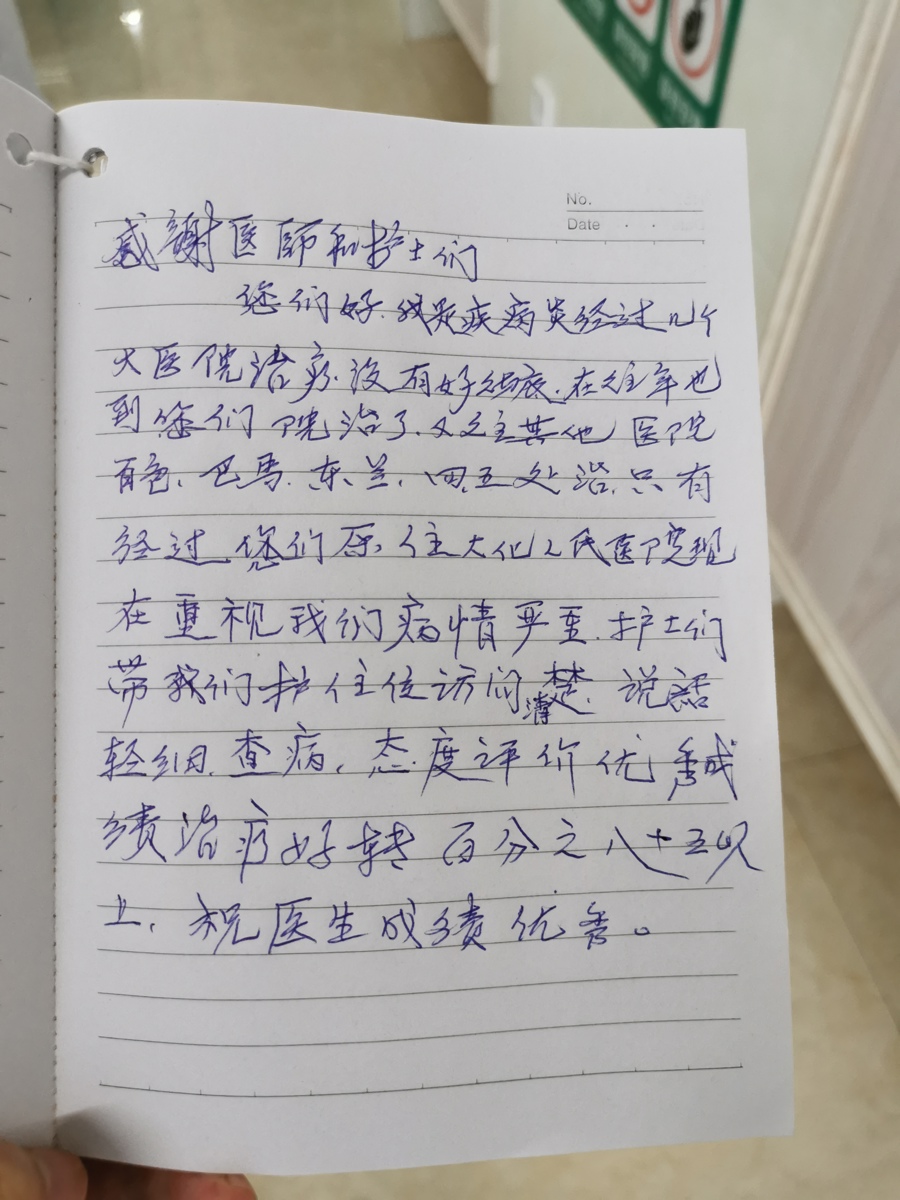 No.
Date
感謝医師和护士们
您们好.我是疾病炎经过几个
大医院治疗.没有好彻底.在往年也
到您们院治了.又去其他医院
百色.巴马.东兰.田五处治.只有
经过您们原.住大化人民医院现
在重视我们病情严重.护士们
带我们护住位访问清楚.说話
轻细.查病.态度评价优秀成
绩治疗好转百分之八十五以
上.祝医生成绩优秀。